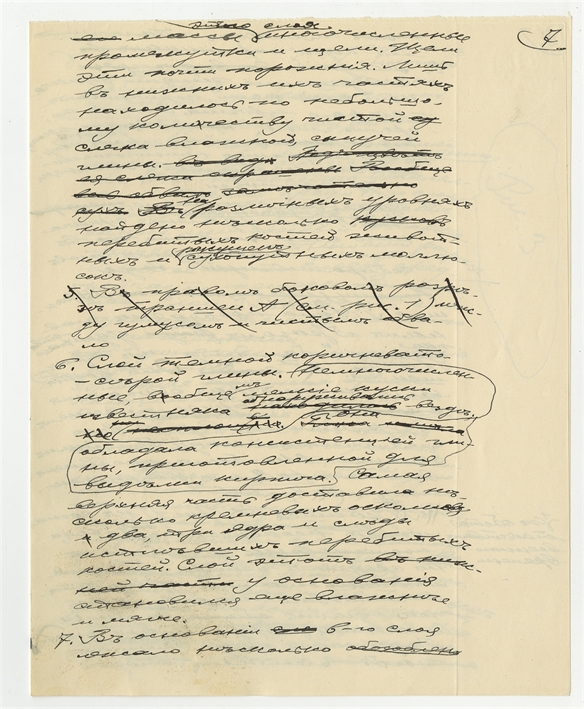 7
этого слоя
массы многочисленные
промежутки и щели. Щели
эти почти порожнія. Лишь
въ нижнихъ ихъ частяхъ
находилось по небольшо-
му количеству чистой
слегка влажной, сыпучей
глины.
На различныхъ уровняхъ
найдено нѣсколько
перебитыхъ костей живот-
ныхъ и сухопутныхъ моллю-
сокъ.
5. Въ правомъ боковомъ разрѣ-
зѣ траншеи А (см. рис. 1) меж-
ду гумусомъ и чистымъ обва-
ло
6. Слой темной коричневато-
-сѣрой глины. Немногочислен
ные, вообще мелкіе куски
известняка вездѣ.
Глина
обладала консистенціей гли-
ны, приготовленной для
выдѣлки кирпича. Самая
верхняя часть доставила нѣ-
сколько кремневыхъ осколковъ
два, три ядра и слѣды
истлѣвшихъ перебитыхъ
костей. Слой этотъ въ ниж-
ней части у основанія
становился еще влажнѣе
и мягче.
7. Въ основаніи его 6-го слоя
лежало нѣсколько